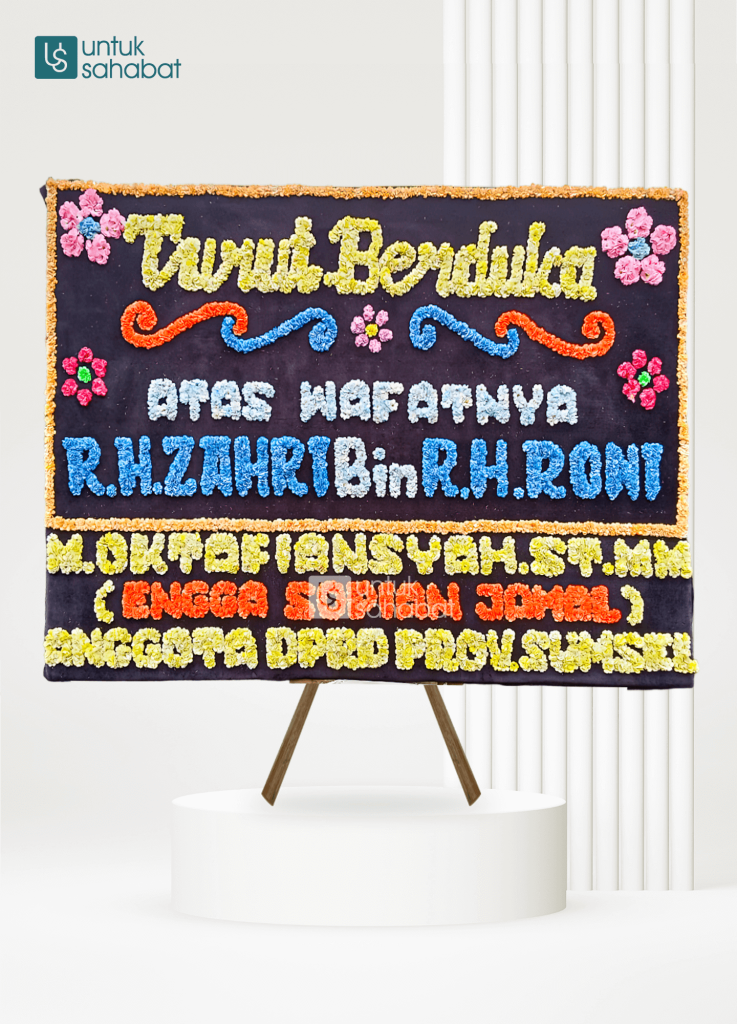 untuk
sahabat
Turut Berduka
ATAS WAFATNYA
R.H.ZAHRI Bin R.H.RONI
M.OKTAFIANSYAH.ST.MM
untuk
sahabat
(ENGGA JAMBL)
ANGGOTA DPRD PROV.SUMSEL